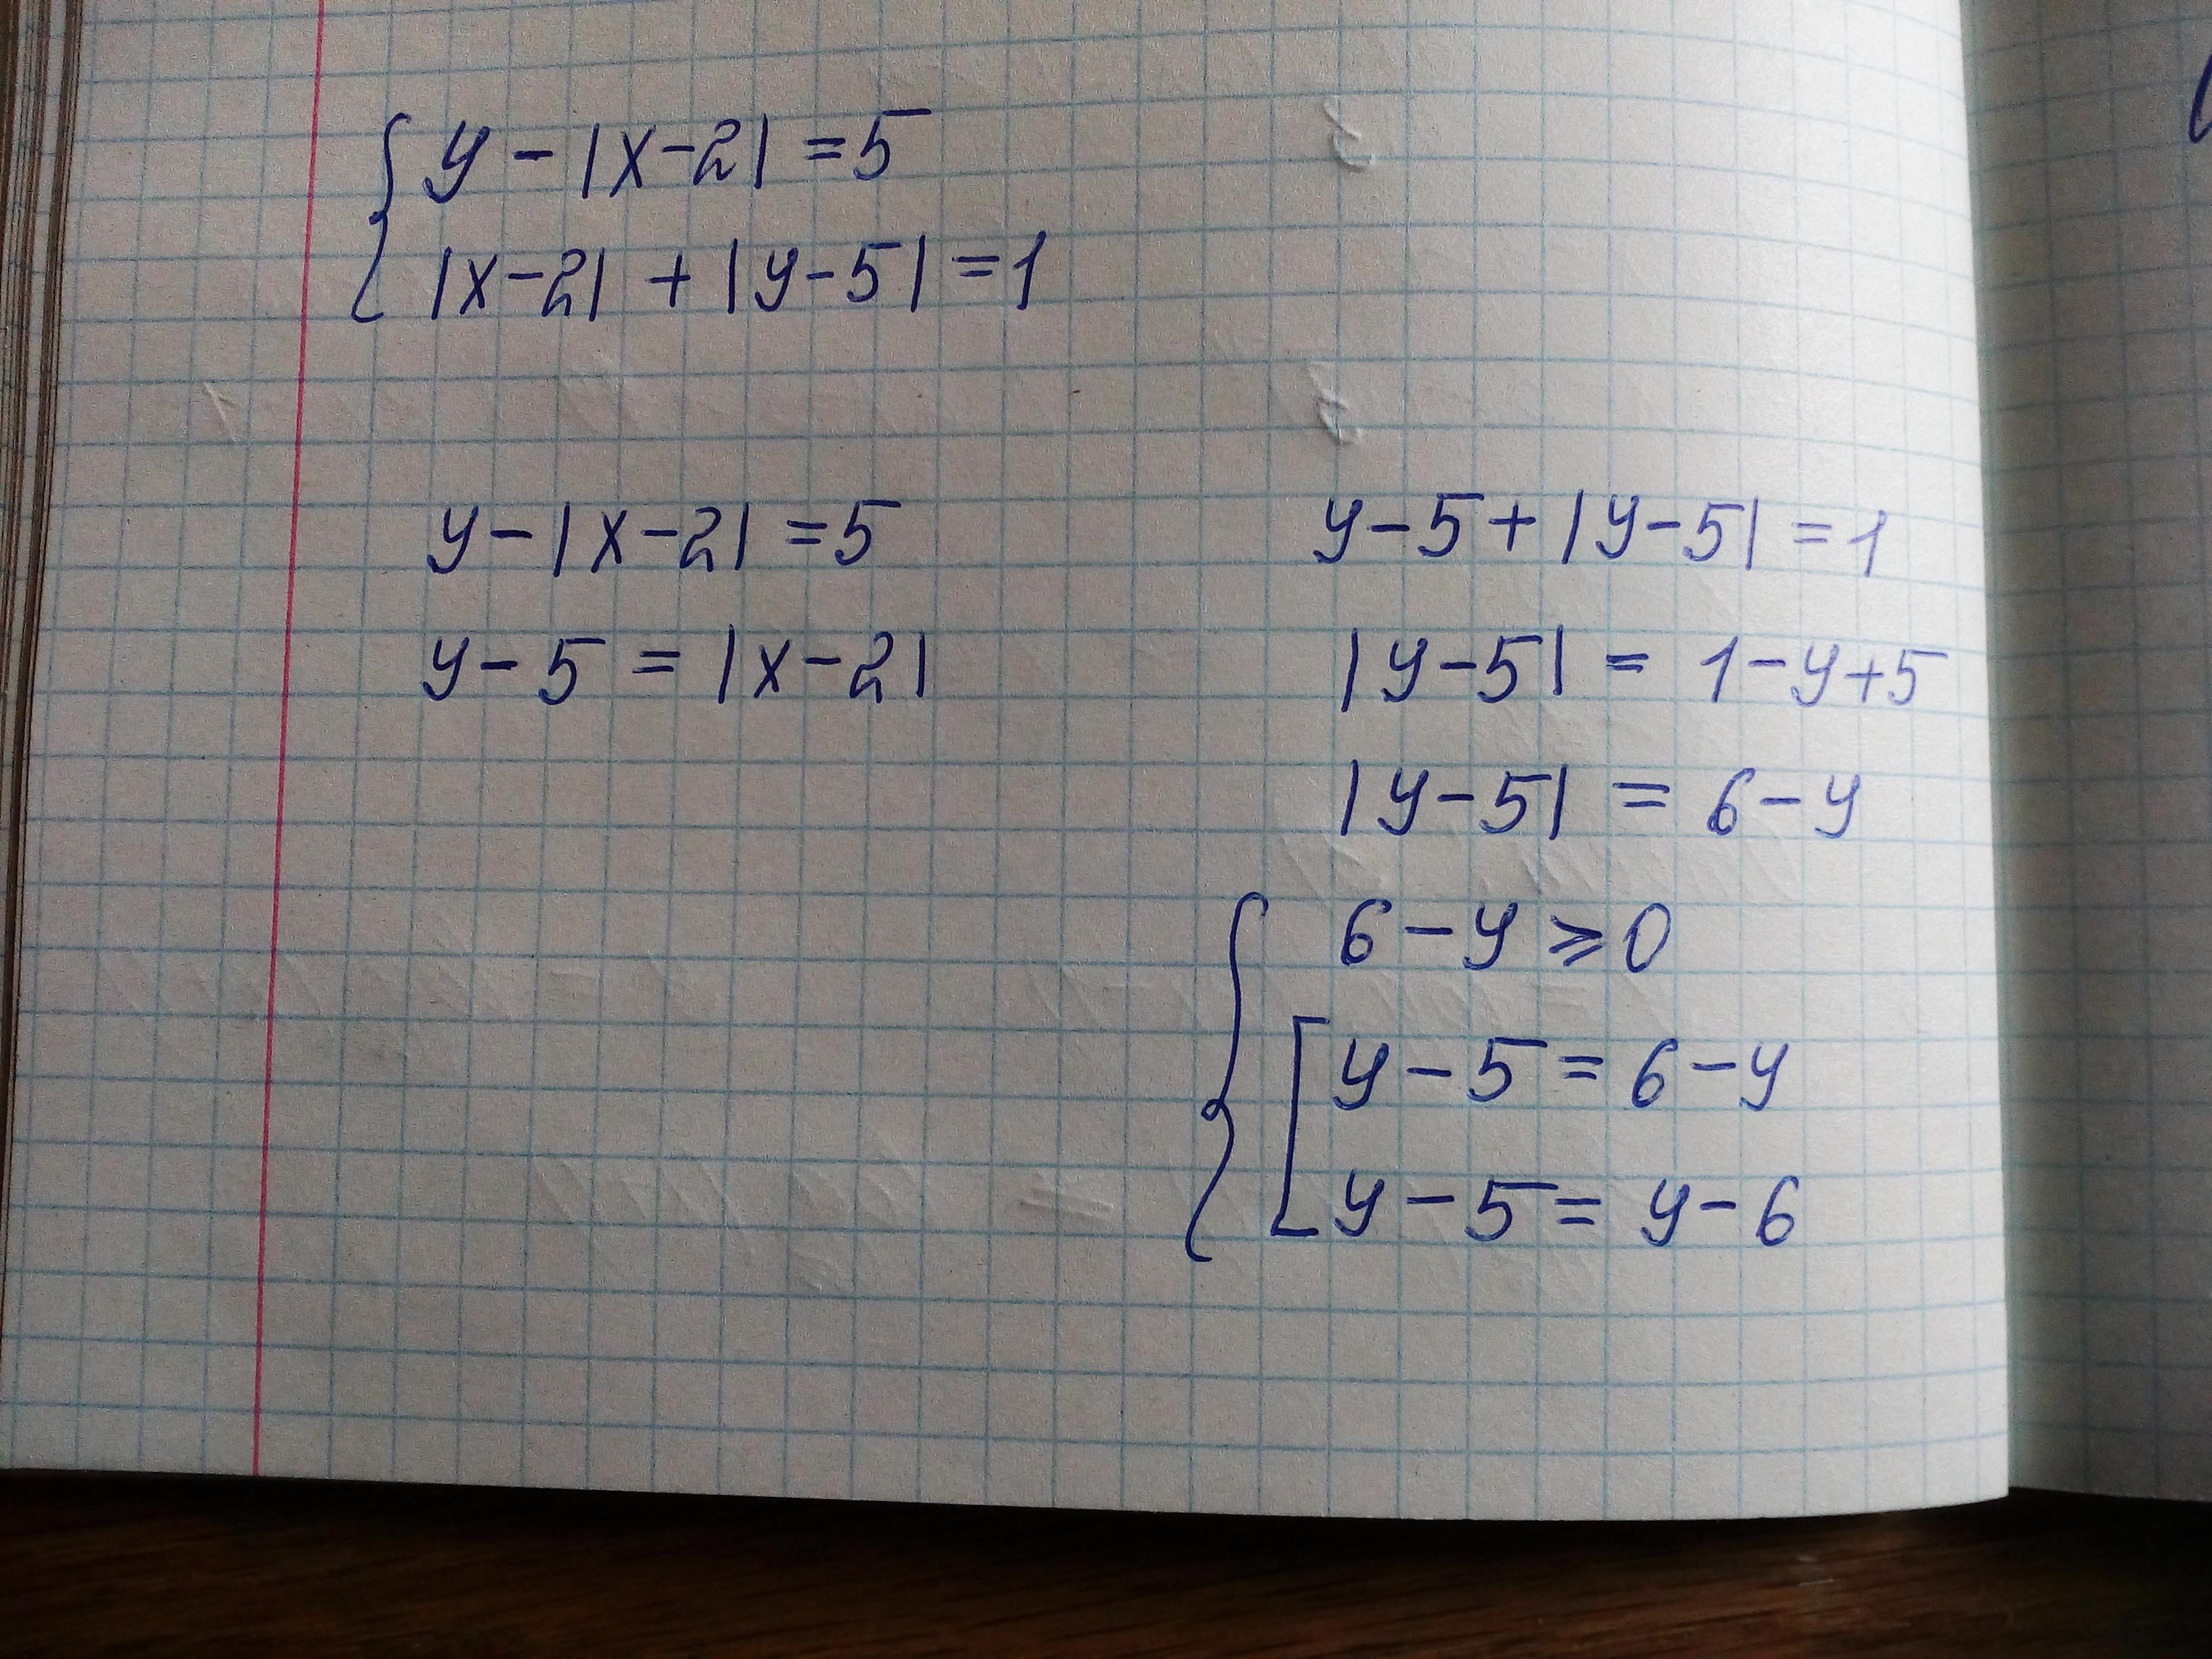 y - |x-2| = 5
|x-2| + |y-5| = 1
y - |x-2| = 5
y - 5 = |x-2|
y - 5 + |y-5| = 1
|y-5| = 1 - y + 5
|y-5| = 6 - y
6 - y ⩾ 0
y - 5 = 6 - y
y - 5 = y - 6